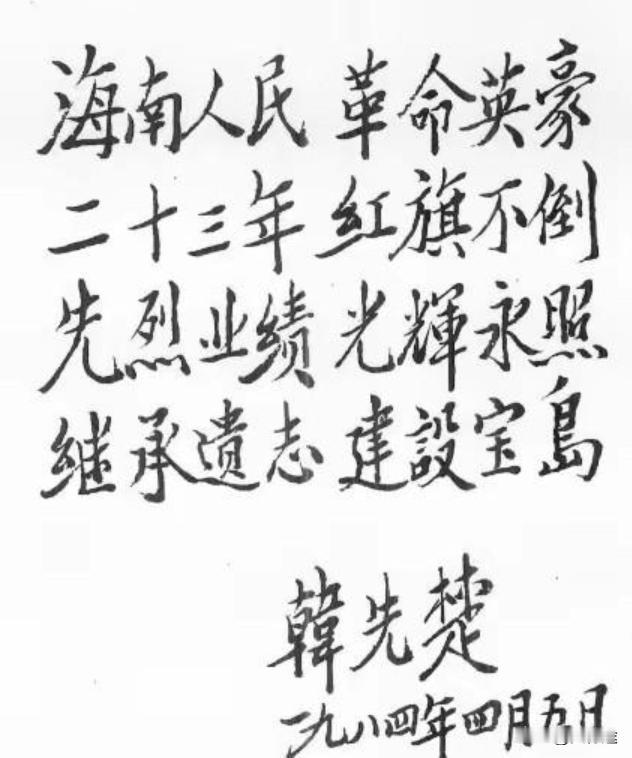 海南人民 革命英豪
二十三年 红旗不倒
先烈业绩 光輝永照
继承遗志 建設宝島
韓先楚
一九八四年四月五日